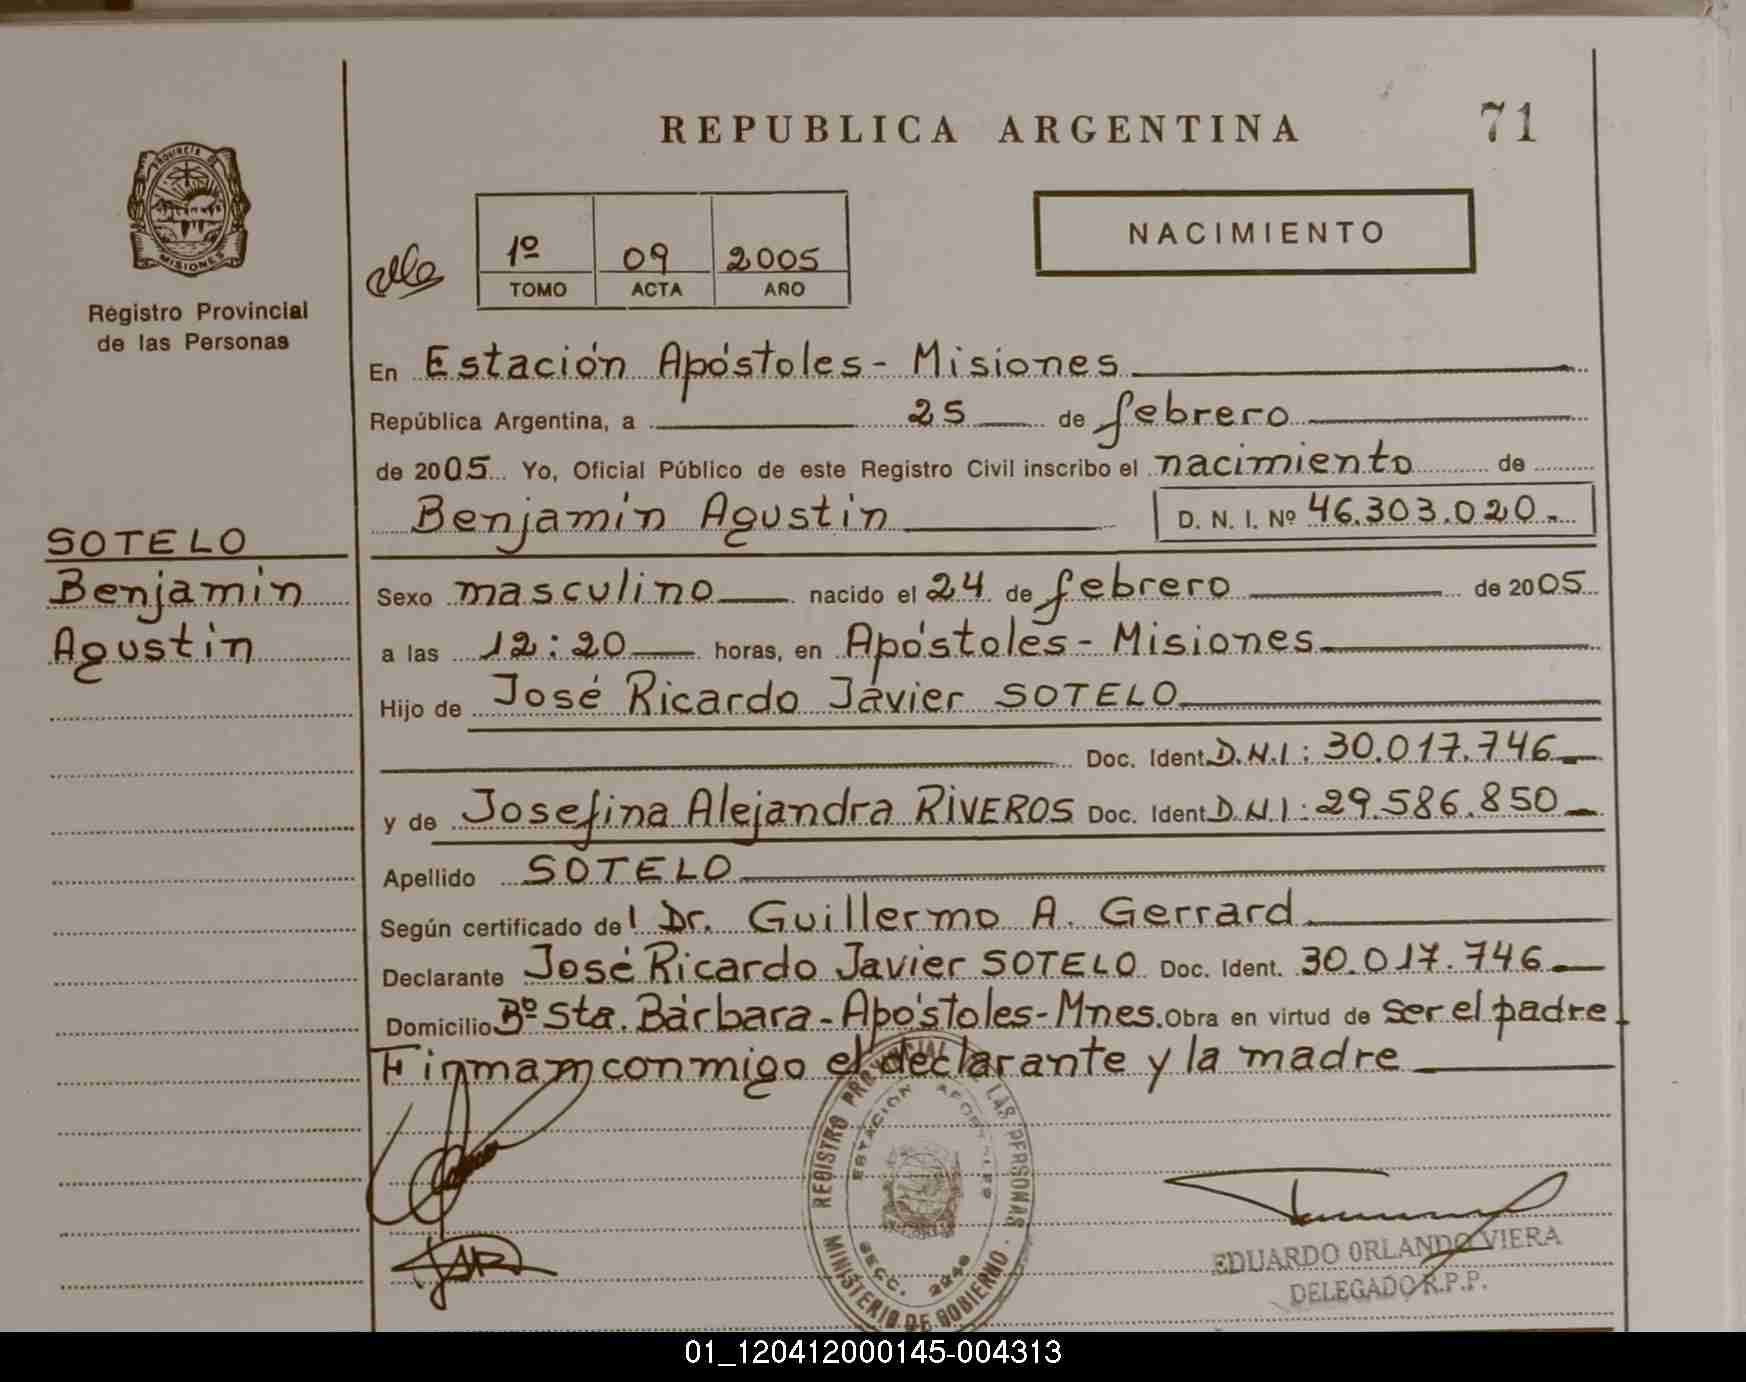 REPUBLICA ARGENTINA
71
PROVINCIA DE
MISIONES
Registro Provincial
de las Personas
1º 09 2005
TOMO ACTA AÑO
NACIMIENTO
En Estación Apóstoles - Misiones
República Argentina, a 25 de febrero
de 2005 Yo, Oficial Público de este Registro Civil inscribo el nacimiento de
Benjamín Agustín D. N. I. Nº 46.303.020.-
SOTELO
Benjamín
Agustín
Sexo masculino nacido el 24 de febrero de 2005
a las 12:20 horas, en Apóstoles - Misiones
Hijo de José Ricardo Javier SOTELO
Doc. Ident. D.N.I: 30.017.746
y de Josefina Alejandra RIVEROS Doc. Ident. D.N.I: 29.586.850
Apellido SOTELO
Según certificado del Dr. Guillermo A. Gerrard
Declarante José Ricardo Javier SOTELO Doc. Ident. 30.017.746
Domicilio Bº Sta. Bárbara - Apóstoles - Mnes. Obra en virtud de ser el padre
Firman conmigo el declarante y la madre
REGISTRO PROVINCIAL DE LAS PERSONAS
ESTACION APOSTOLES
SECC. 2040
MINISTERIO DE GOBIERNO
EDUARDO ORLANDO VIERA
DELEGADO R.P.P.
01_120412000145-004313